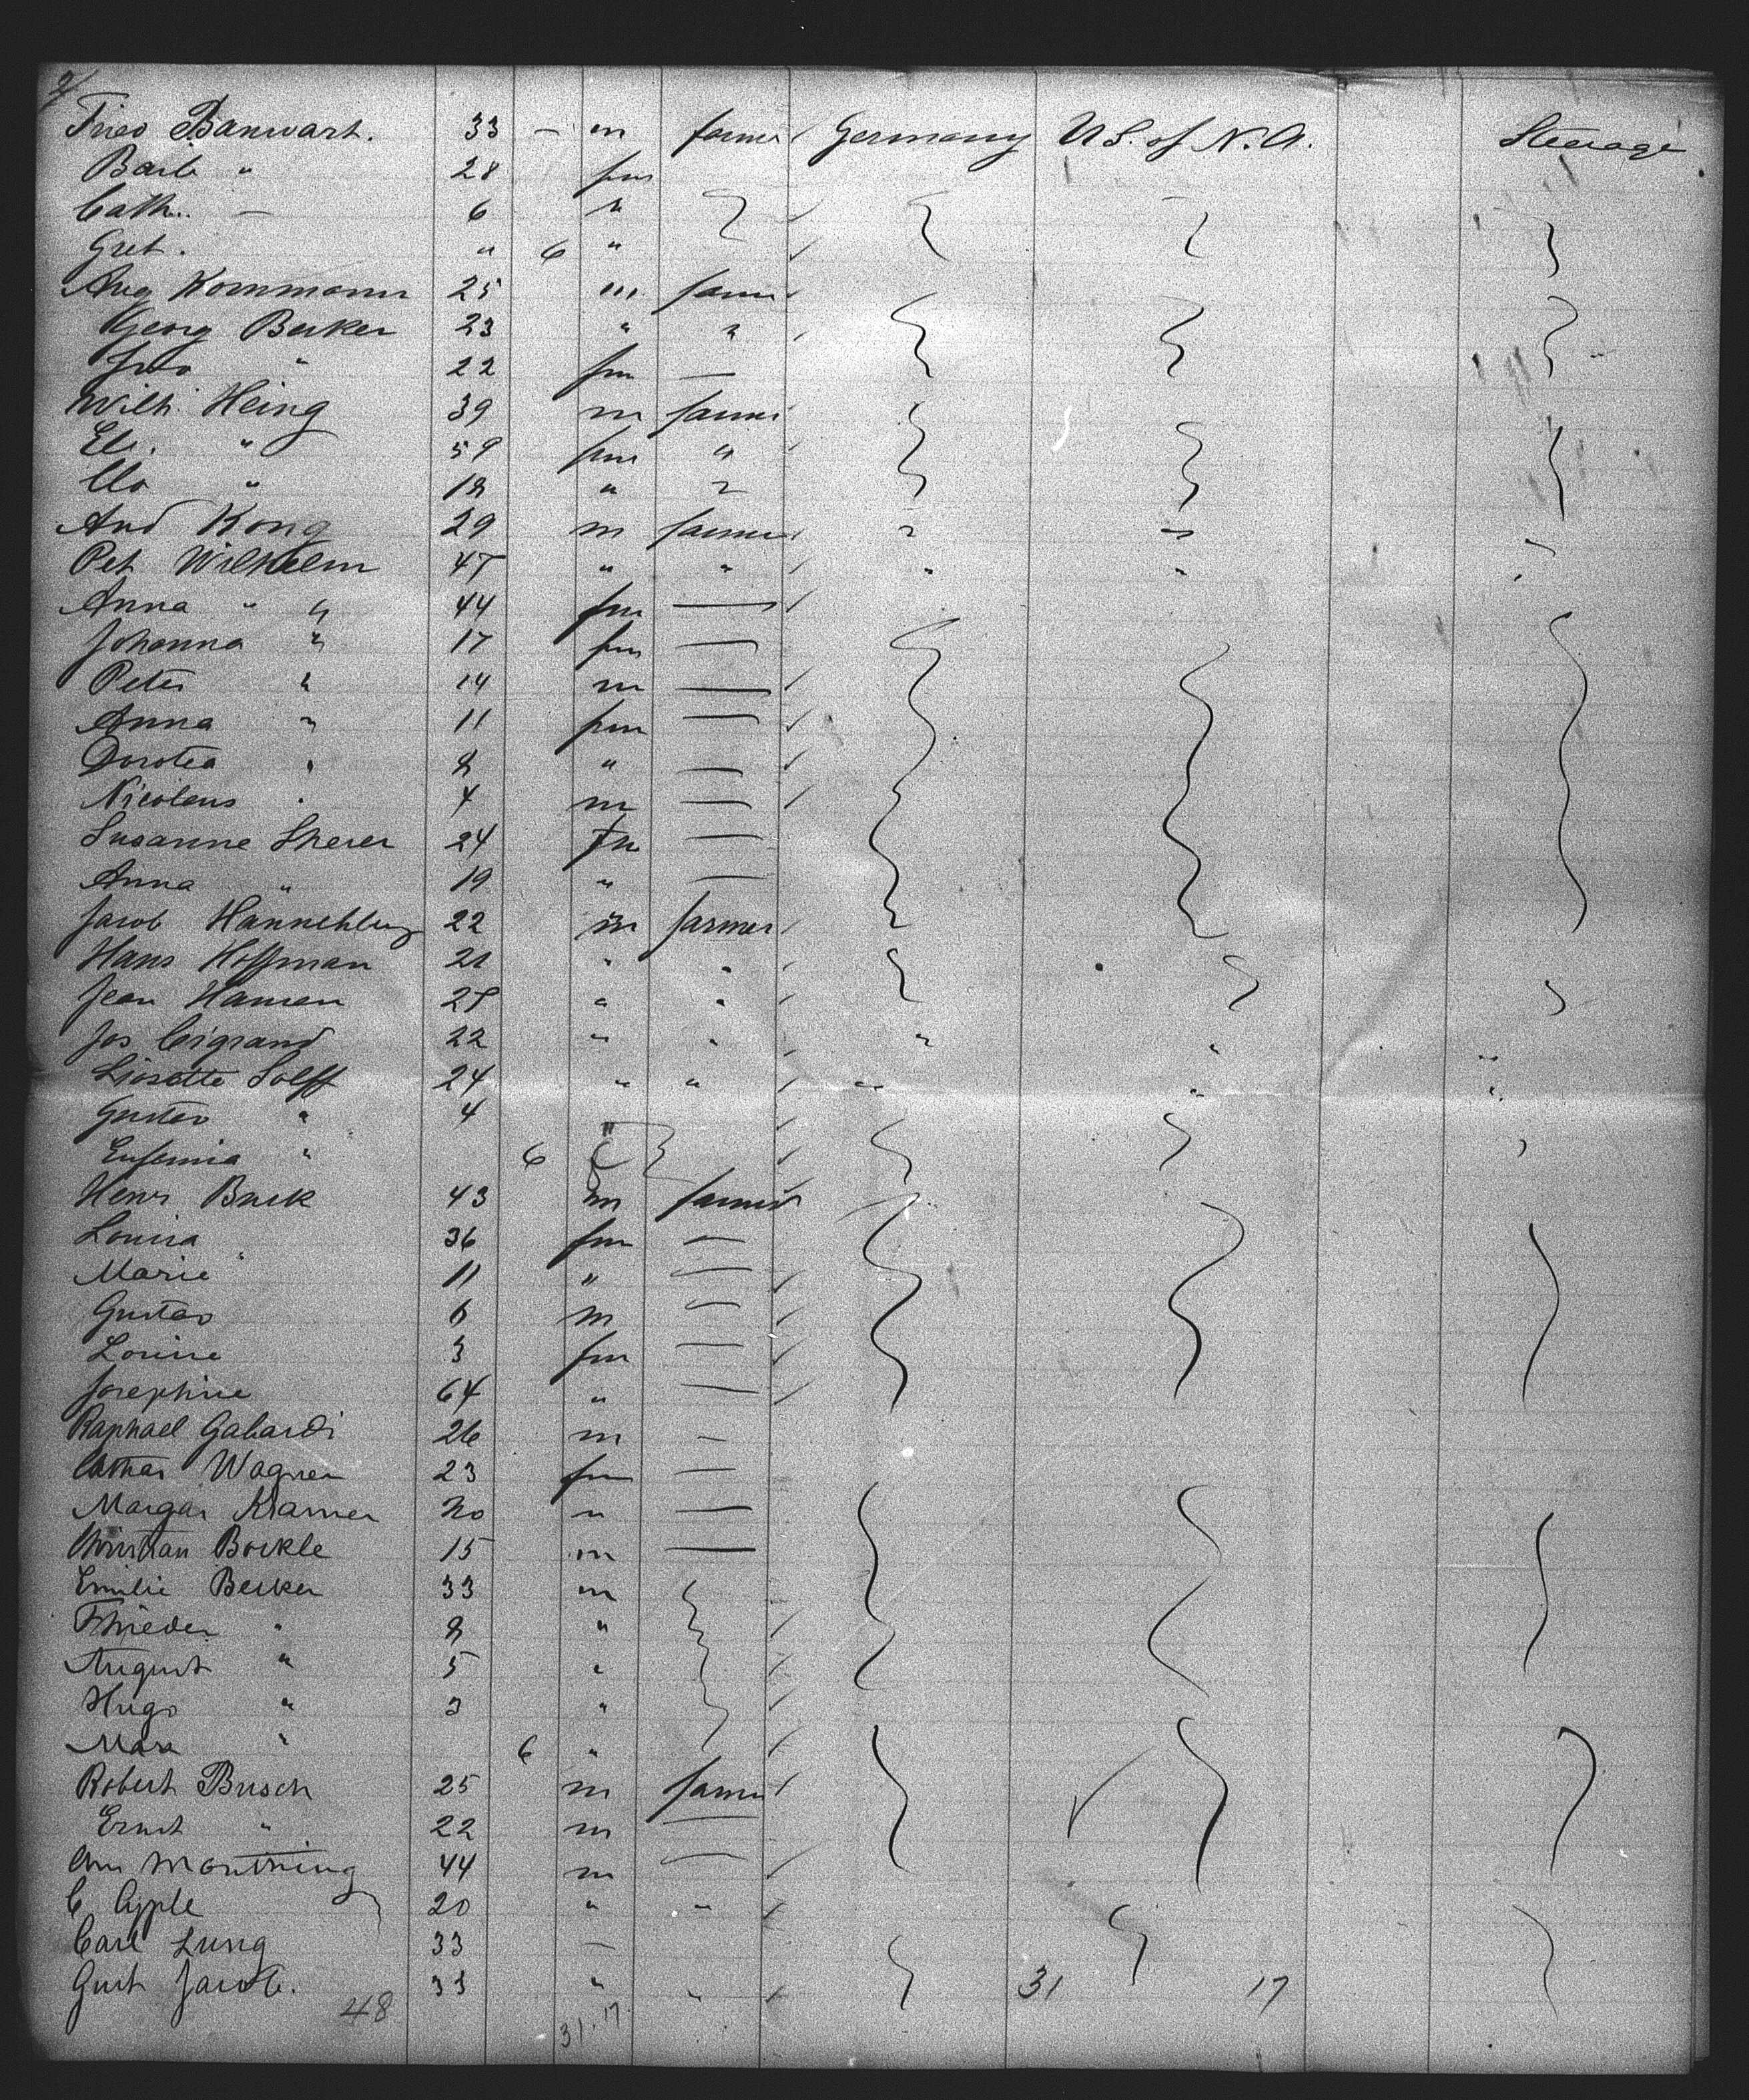 2/
Fried Banwart. 33 — m farmer Germany U.S. of N.A. Steerage
Barb " 28 fm
Cath.. — 6 "
Gret. " 6 "
Aug Kornmann 25 m farmer
Georg Becker 23 " "
" 22 fm —
Wilh. Heing 39 m farmer
El. " 59 fm "
" 18 " "
And Kong 29 m farmer " " "
Pet Wilhelm 47 " " " " "
Anna " " 44 fm —
Johanna " 17 fm —
Peter " 14 m —
Anna " 11 fm —
Dorotea " 8 " —
Nicolaus " 4 m —
Susanne Sherer 24 fm —
Anna " 19 " —
Jacob 22 m farmer
Hans Hoffman 21 " "
Jean Hansen 28 " "
Jos Cigrand 22 " " " " "
Lisette Solff 24 " " " " "
Gustav " 4 "
Eufemia " 6
Henri Buck 43 m farmer
Louisa " 36 fm —
Marie " 11 " —
Gustav 6 m —
Louise 3 fm —
Josephine 64 " —
Raphael Gabardi 26 m —
Wagner 23 fm —
Margar Kramer 20 " —
Christian Bockle 15 m —
Emilie Becker 33 m
Frieder " 8 "
August " 5 "
Hugo " 3 "
Max " 6 "
Robert Busch 25 m farmer
Ernst " 22 m —
44 m —
C Apple 20 " "
Carl Lung 33 —
Gust Jacob. 33 " " 31 17
48 31.17